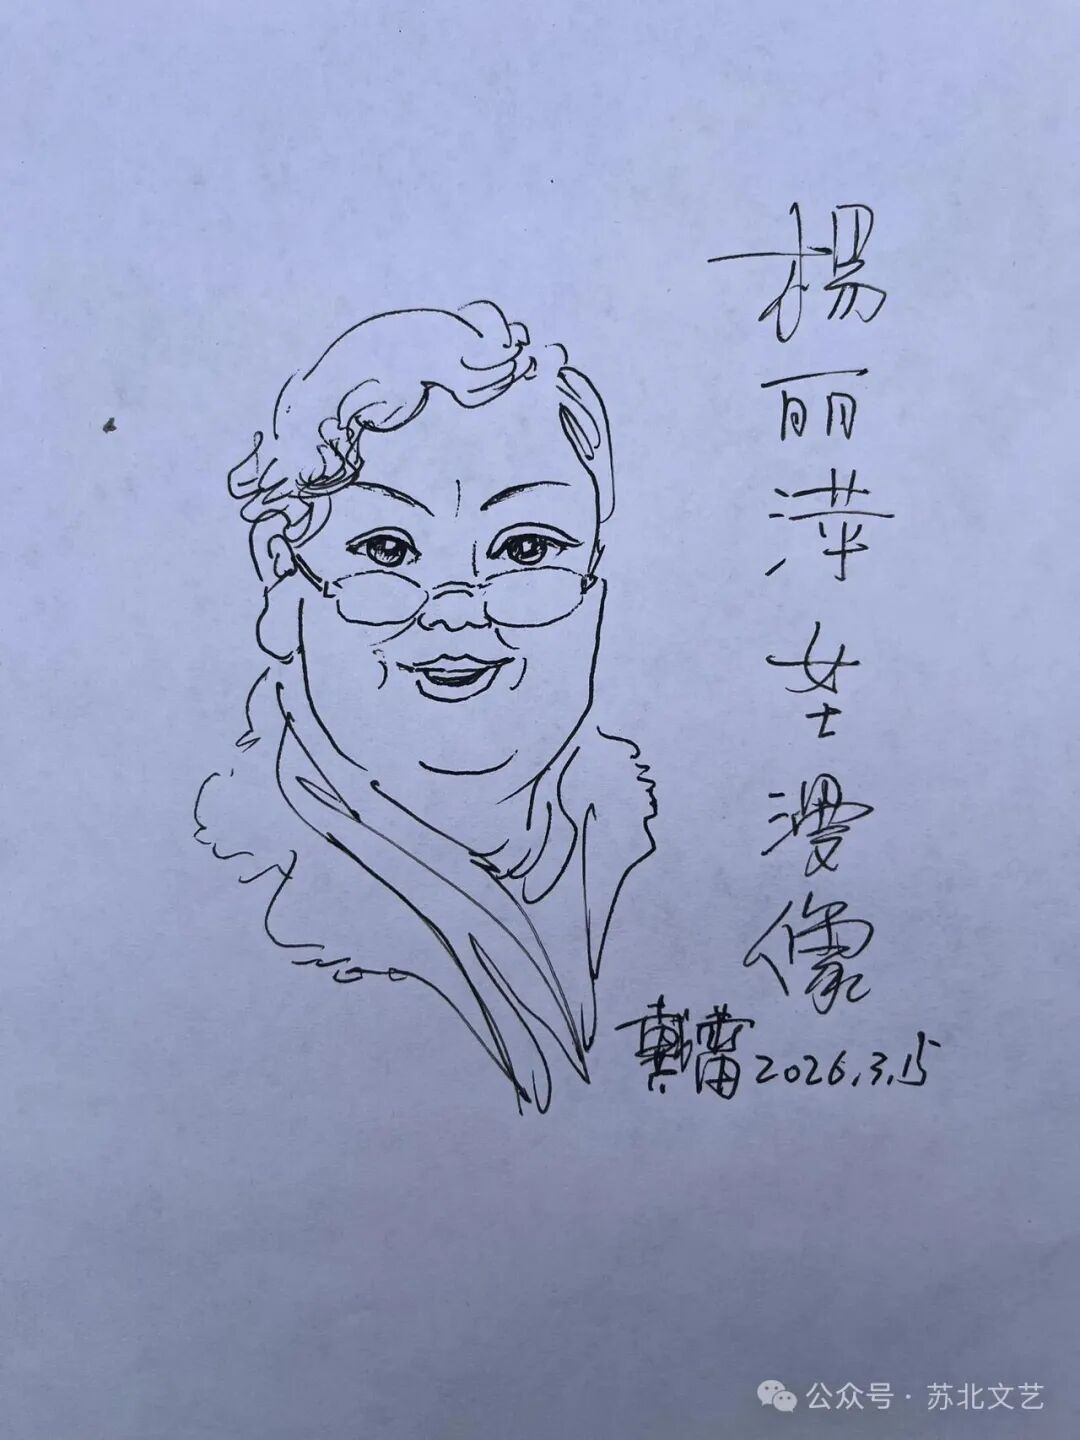 楊丽萍女士漫像
2026.3.15
公众号 · 苏北文艺